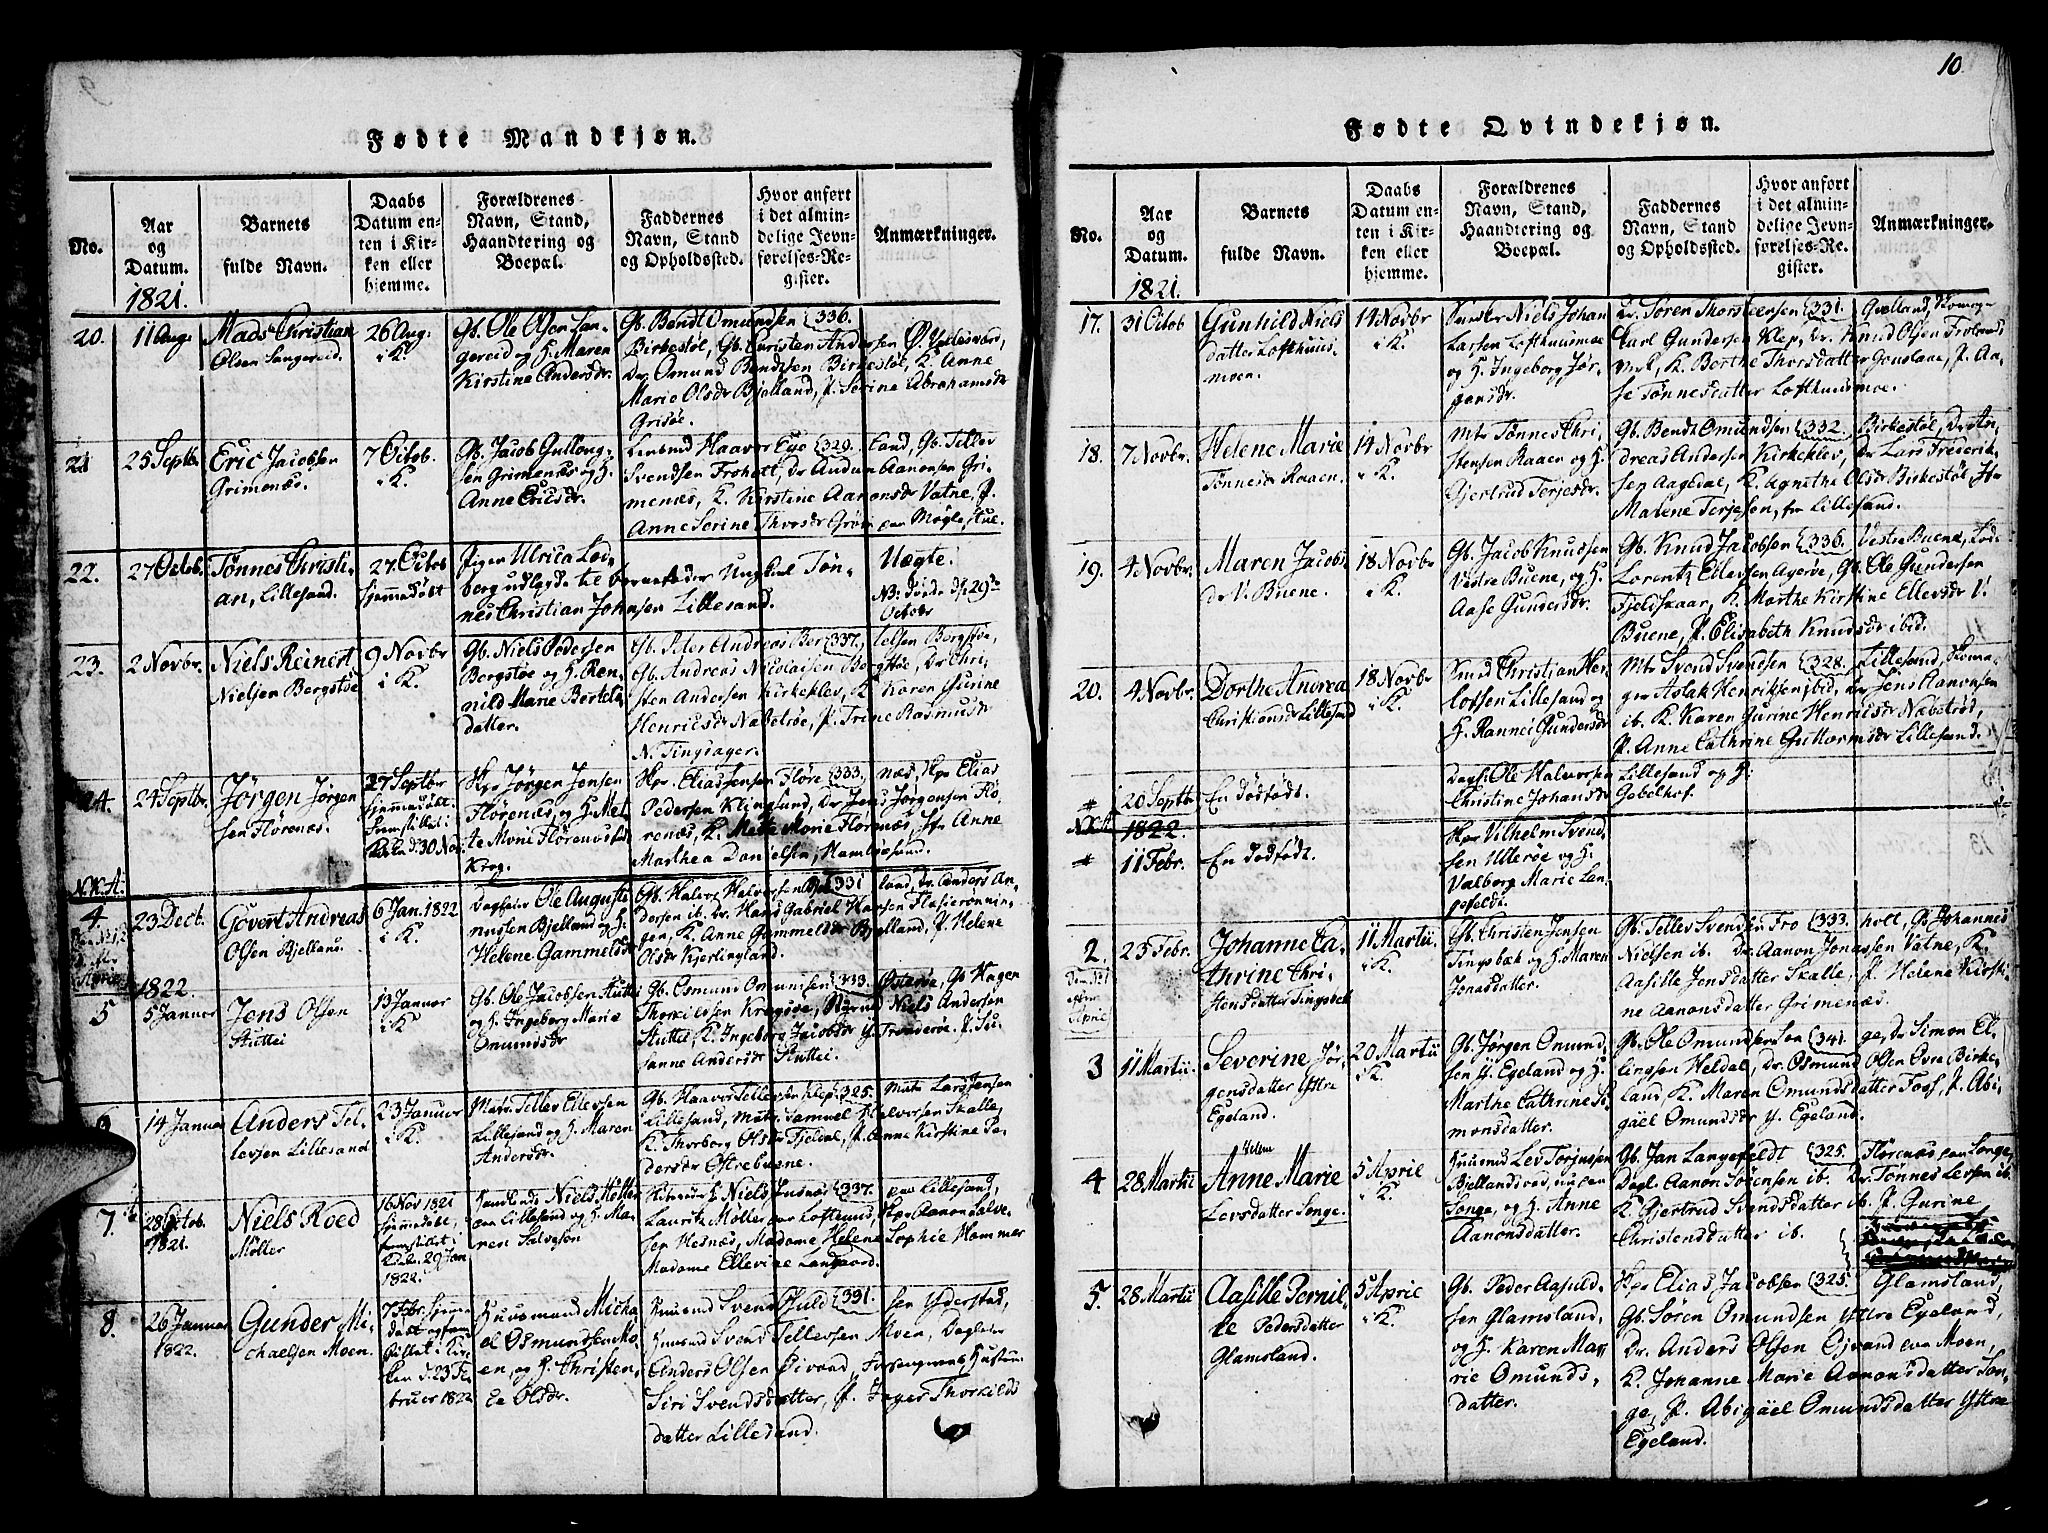 10
Fødte Mandkjøn.
No.
Aar og Datum.
Barnets fulde Navn.
Daabs Datum enten i Kirken eller hjemme.
Forældrenes Navn, Stand, Haandtering og Boepæl.
Faddernes Navn, Stand og Opholdssted.
Hvor anført i det almindelige Jevnførelses-Register.
Anmærkninger.
1821.
20.
11 Aug.
Mads Christian
Olsen Sangereid.
26 Aug.
i K.
Gb. Ole Olsen San-
gereid og H. Maren
Kirstine Andersdr.
Gb. Bendt Omundsen 336.
Birkestøl, Gb. Christen Andersen
Dr. Omund Bendtsen Birkestøl, K. Anne
Marie Olsdr Bjelland, P. Serine Abrahamsdr
Grisøe.
21
25 Septbr
Eric Jacobsen
Grimenæs.
7 Octob.
i K.
Gb. Jacob Gullong-
sen Grimenæs og H.
Anne Ericsdr.
Haaver Ege 329. land, Gb. Tellev
Svendsen Froholt, Dr Audun Aanonsen Gri-
menæs, K. Kirstine Aanonsdr Vatne, P.
Anne Serine Thorsdr
22.
27 Octob.
Tønnes Christi-
an, Lillesand.
27 Octob
hjemmedøbt
Pigen Ulrica Lod-
berg udlagde til barnefader Ungkarl Tøn-
nes Christian Johnsen Lillesand.
Uægte.
NB: døde d. 29de
October
23.
2 Novbr.
Niels Reinert
Nielsen Bergstøe
9 Novbr
i K.
Gb. Niels Pedersen
Bergstøe og H. Ren-
nild Marie Bertels-
datter.
Gb. Peter Andreas Ber 337. telsen Bergstøe,
Gb. Andreas Nicolaisen Bergstøe, Dr Chri-
sten Andersen Kirkeklev, K Karen Gurine
Henricsdr Nabstrøe, P. Trine Rasmusdr
N. Tingsager.
24.
24 Septbr.
Jørgen Jørgen-
sen Florenæs.
27 Septbr
hjemmedøbt
Skp. Jørgen Jensen
Florenæs, og H. Met-
te Marie Florenæs født
Krog.
Skpr. Elias Jensen Flore 333. næs, Skpr Elias
Pedersen Klingsund, Dr Jens Jørgensen Flo-
renæs, K. Mette Marie Florenæs, Anne
Marthea Danielsen,
N.K.A:
4
23 Dect.
Govert Andreas
Olsen Bjelland.
6 Jan. 1822
i K.
Ole Auguste
nussen Bjelland og H.
Helene Gammelsdr
Gb. Halvor Halvorsen Bjel 331 land, Dr. Anders An-
dersen ib. Dr. Hans Gabriel Hansen
gen, K. Anne Gammelsdr Bjelland, P. Helene
Olsdr Kjerlingland.
1822.
5
5 Januar
Jens Olsen
Stuttei
13 Januar
i K.
Gb. Ole Jacobsen Stuttei
og H. Ingeborg Marie
Omundsdr
Gb. Osmund Omundsen 333. Østerøe, Gb Hagen
Thorkildsen Kragsøe, Niels Andersen
Stuttei, K. Ingeborg Jacobsdr P. Su-
sanne Andersdr Stuttei.
6
14 Januar
Anders Tel-
levsen Lillesand
23 Januar
i K.
Matr. Tellev Ellevsen
Lillesand og H. Maren
Andersdr.
Gb. Haaver Tellevsen Klep 325. Matr Lars Jensen
Lillesand, Matr. Samuel Halvorsen Skalle,
K. Thorborg Olsdr Fjeldal, P. Anne Kirstine Pe-
dersdr Østrebuene.
7.
28 Octob.
1821.
Niels Roed
Møller
16 Nov 1821
hjemmedøbt,
fremstillet i
Kirken. 29 Jan
1822.
Niels Møller
Lillesand og H. Ma-
ren Salvesen
337.
Laurits Møller
sen Hesnæs, Madame Helene Sophie Hammer
Madame Ellevine Langaard.
8.
26 Januar
1822.
Gunder Mi-
chaelsen Moen.
7 Febr. hjemme
døbt og frem-
stillet i Kir-
ken d. 23 Fe-
bruar 1822
Huusmand Micha
el Osmundsen Mo-
en, og H. Christen-
Ee Olsdr.
331.
Svend Tellevsen Moen,
Anders Olsen
Siri Svendsdatter, P. Inger Thorkilds
datter Lillesand.
Fødte Qvindekjøn.
No.
Aar og Datum.
Barnets fulde Navn.
Daabs Datum enten i Kirken eller hjemme.
Forældrenes Navn, Stand, Haandtering og Boepæl.
Faddernes Navn, Stand og Opholdssted.
Hvor anført i det almindelige Jevnførelses-Register.
Anmærkninger.
1821.
17.
31 Octob
Gunhild Niels
datter Lofthuus-
moen.
14 Novbr
i K.
Niels Johan
Larsen Lofthuusmoe
og H. Ingeborg Jør-
gensdr.
Dr. Søren Thorsteensen 331. Qvelland,
Carl Gundersen Klep, Dr. Knud Olsen
K. Berthe Thorsdatter P. Aa-
se Tønnesdatter Lofthuusmoe.
18.
7 Novbr.
Helene Marie
Tønnesdr Raaen.
14 Novbr
i K.
Mtr Tønnes Chri-
stensen Raaen og H.
Gjertrud Terjesdr.
Gb. Bendt Omundsen 332. Birkestøl, Dr An-
dreas Andersen Kirkeklev, Dr Lars Frederik-
sen Aagedal, K. Agnethe Olsdr Birkestøl,
Malene Terjesen, fra Lillesand.
19.
4 Novbr.
Maren Jacobs
dr V. Buene.
18 Novbr
i K.
Gb. Jacob Knudsen
Vestre Buene, og H.
Aase Gundersdr.
Gb. Knud Jacobsen 336. Vestre Buene,
Lorentz Ellevsen Agerøe, Gb Ole Gundersen
Fjeldskaar, K. Marthe Kirstine Ellevsdr V.
Buene, P. Elisabeth Knudsdr ibid.
20.
4 Novbr.
Dorthe Andrea
Christiansdr Lillesand
18 Novbr
i K.
Smed Christian Her-
lofsen Lillesand og
H. Rannei Gundersdr
Mtr Svend Svendsen 328. Lillesand, Skoma-
ger Aslak Henriksen ibid, Dr Jens Aanonsen
ib. K. Karen Gurine Henricsdr Nabstrød,
P. Anne Cathrine Guttormsdr Lillesand.
#
20 Septbr
En dødfødt.
Ole Halvorsen Lillesand og H:
Christine Johansdr Gobelhof.
N.K.A
1822.
#
11 Febr.
En dødfødt.
Skpr Vilhelm Svend-
sen Ulterøe og H.
Valborg Marie Lan-
gefeldt.
2.
25 Febr.
Johanne Ca-
thrine Chri-
stensdatter Tingsbek
11 Martii
i K.
Gb. Christen Jensen
Tingsbæk og H. Maren
Jonasdatter.
Gb. Tellev Svendsen Fro 333. holt, Gb Johannes
Nielsen ib. Dr. Aanon Jonassen Vatne, K.
Aasille Jensdatter Skalle, P. Helene Kirsti-
ne Aanonsdatter Grimenæs.
3
11 Martii.
Severine Jør-
gensdatter Yttre
Egeland.
20 Martii
i K.
Gb. Jørgen Omund-
sen Y. Egeland og H.
Marthe Cathrine Si-
monsdatter.
Gb. Ole Omundsen Son 341. ge, Dr Simon El-
lingsen Heldal, Dr. Osmund Olsen Øvre Birke-
land, K. Maren Omundsdatter Foss, P. Abi-
gael Omundsdr Y. Egeland.
4
28 Martii
Helene
Anne Marie
Levsdatter Songe.
5 April
i K.
Huusmd Lev Torjussen
Bjellandsvad, nu paa
Songe, og H. Anne
Aanonsdatter.
Gb. Jan Langefeldt 325. Florenæs paa Songe,
Dagl. Aanon Sørensen ib. Dr. Tønnes Levsen ib.
K Gjertrud Svendsdatter ib. P. Gurine
Christensdatter ib.
5.
28 Martii
Aasille Pernil-
le Pedersdatter
Glamsland.
5 April
i K.
Gb. Peder Aasuld-
sen Glamsland,
og H. Karen Ma-
rie Omunds-
datter.
Skpr Elias Jacobsen 325. Glamsland,
Gb. Søren Omundsen Yttre Egeland,
Dr. Anders Olsen Øivand Moen,
K. Johanne Marie Aanonsdatter Son-
ge, P. Abigael Omundsdatter Yttre
Egeland.